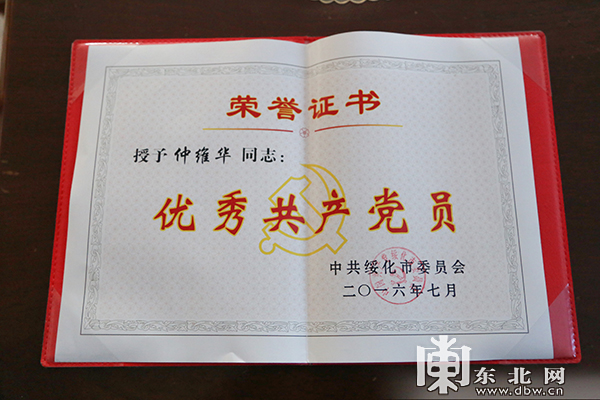 荣誉证书
授予仲维华 同志:
优秀共产党员
中共绥化市委员会
二〇一六年七月
东北网
www.dbw.cn